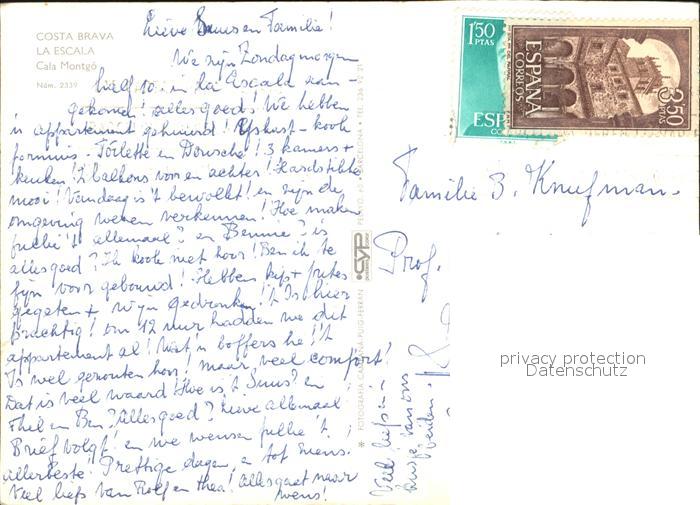 COSTA BRAVA
LA ESCALA
Cala Montgó
Núm. 2339
Lieve Suus en Familie!
We zijn Zondagmorgen
half 10 in La Escala aan-
gekomen! alles goed! We hebben
'n appartement gehuurd! IJskast - kook
fornuis - Toilette en Dousche! 3 kamers +
keuken! 2 balkons voor en achter! Hardstikke
mooi! Vandaag is 't bewolkt! en zijn de
omgeving wezen verkennen! Hoe maken
jullie 't allemaal? en Bennie? is
alles goed? Ik kook niet hoor! Ben ik te
fijn voor gebouwd! Hebben kip + frites
gegeten + wijn gedronken! 't Is hier
prachtig! om 12 uur hadden we dit
appartement al! Wat 'n boffers he! 't
Is wel genoeten hoor! maar veel comfort!
Dat is veel waard! Hoe is 't Suus? en
Thil en Ben? Alles goed? Lieve allemaal
Brief volgt! en we wensen jullie 't
allerbeste! Prettige dagen, en tot ziens.
Veel liefs van Rolf en Thea! alles gaat naar
wens!
FOTOGRAFIA CAMPAÑÁ-PUIG-FERRAN
CYP
BARCELONA - TEL. 236
1'50
PTAS
ESP
ESPAÑA
CORREOS
3,50
PTAS
Familie 3. Knufman-
Prof.
Veel liefs
van ons
privacy protection
Datenschutz